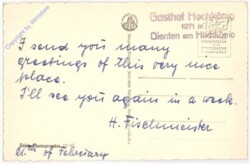 Gasthof Hochkönig
1971 m
Dienten am Hochkönig
I send you many
greetings of this very nice
place.
I'll see you again in a week.
H. Fischmeister
21. of February